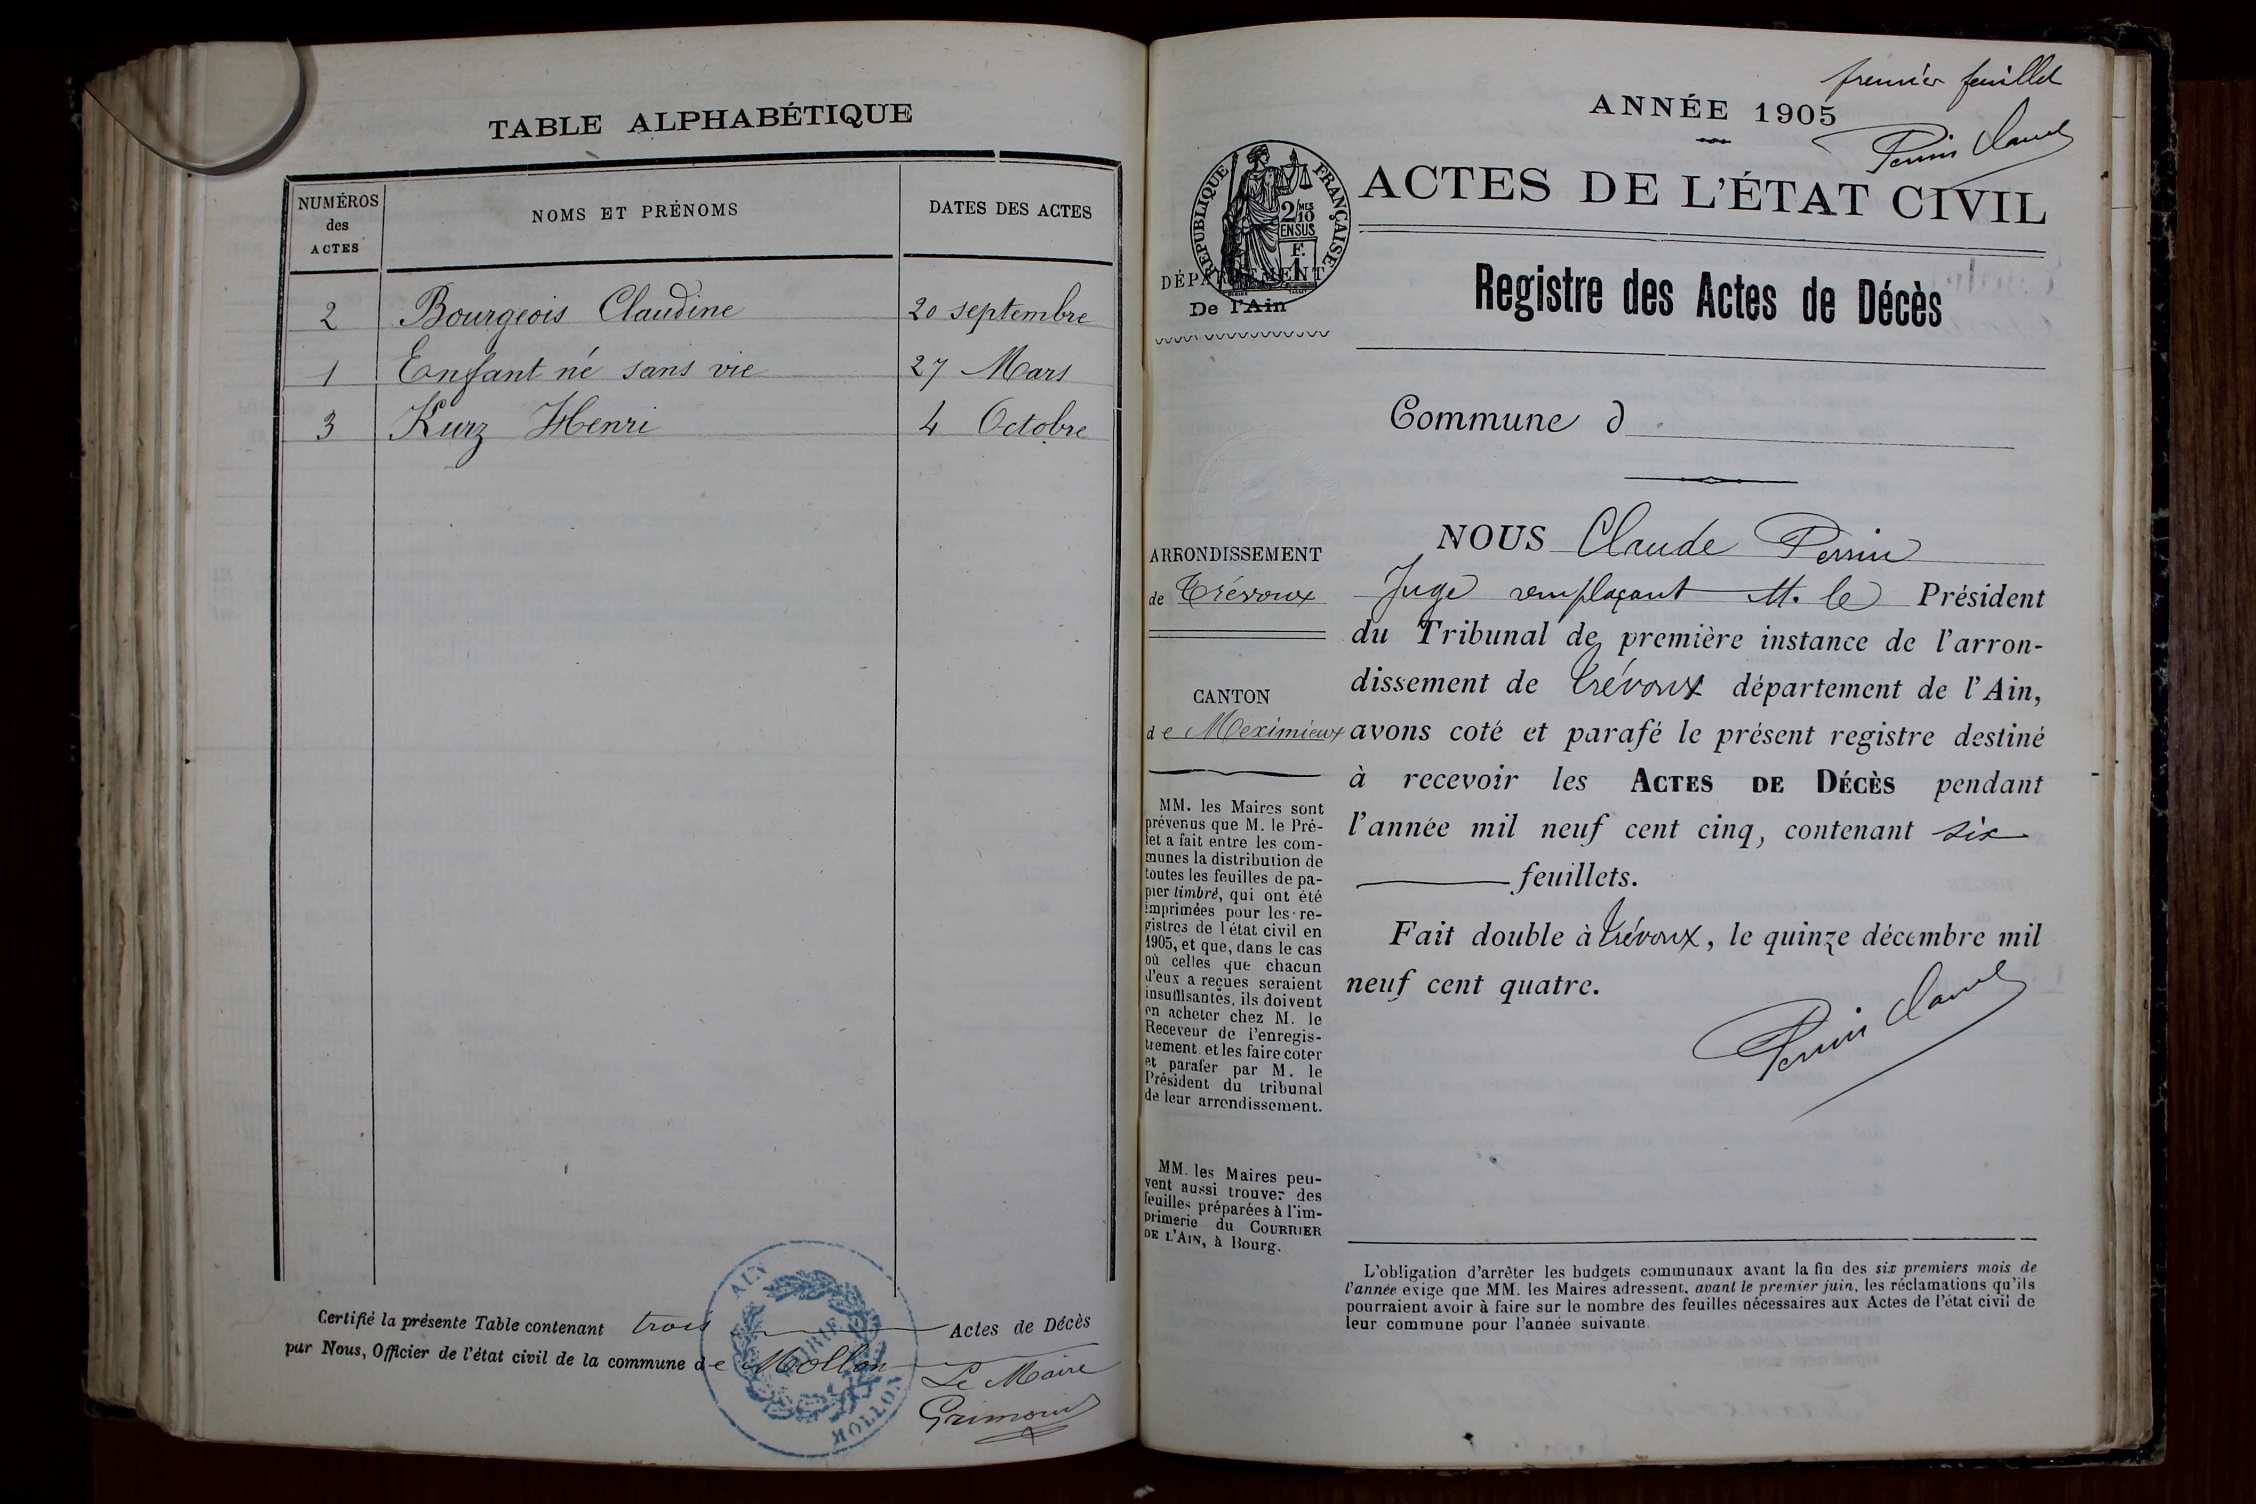 TABLE ALPHABÉTIQUE
NUMÉROS des ACTES
NOMS ET PRÉNOMS
DATES DES ACTES
2 Bourgeois Claudine 20 septembre
1 Enfant né sans vie 27 Mars
3 Kurz Henri 4 Octobre
Certifié la présente Table contenant trois Actes de Décès
par Nous, Officier de l'état civil de la commune de Mollon
Le Maire
AIN
MAIRIE
MOLLON
premier feuillet
ANNÉE 1905
Perrin Claude
ACTES DE L'ÉTAT CIVIL
RÉPUBLIQUE FRANÇAISE
2/10MES
EN SUS
F.
1
DÉPARTEMENT
De l'Ain
Registre des Actes de Décès
Commune d
ARRONDISSEMENT
de Trévoux
CANTON
de Meximieux
MM. les Maires sont
prévenus que M. le Pré-
fet a fait entre les com-
munes la distribution de
toutes les feuilles de pa-
pier timbré, qui ont été
imprimées pour les re-
gistres de l'état civil en
1905, et que, dans le cas
où celles que chacun
d'eux a reçues seraient
insuffisantes, ils doivent
en acheter chez M. le
Receveur de l'enregis-
trement et les faire coter
et parafer par M. le
Président du tribunal
de leur arrondissement.
MM. les Maires peu-
vent aussi trouver des
feuilles préparées à l'im-
primerie du COURRIER
DE L'AIN, à Bourg.
NOUS Claude Perrin
Juge remplaçant M. le Président
du Tribunal de première instance de l'arron-
dissement de Trévoux département de l'Ain,
avons coté et parafé le présent registre destiné
à recevoir les ACTES DE DÉCÈS pendant
l'année mil neuf cent cinq, contenant six
feuillets.
Fait double à Trévoux, le quinze décembre mil
neuf cent quatre.
Perrin Claude
L'obligation d'arrêter les budgets communaux avant la fin des six premiers mois de
l'année exige que MM. les Maires adressent, avant le premier juin, les réclamations qu'ils
pourraient avoir à faire sur le nombre des feuilles nécessaires aux Actes de l'état civil de
leur commune pour l'année suivante.